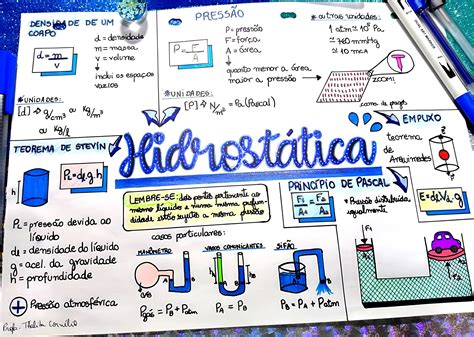 DENSIDADE DE UM CORPO
d = m/v
d = densidade
m = massa
v = volume
inclui os espaços vazios
*UNIDADES:
[d] → g/cm³ ou kg/m³
ou kg/l
PRESSÃO
P = F/A
P = pressão
F = força
A = área
quanto menor a área
maior a pressão
*UNIDADES:
[P] → N/m² = Pa (Pascal)
*outras unidades:
1 atm ≅ 10⁵ Pa
≅ 760 mmHg
≅ 10 mca
ZOOM!
T
cama de pregos
Hidrostática
TEOREMA DE STEVIN
h
PL = d.g.h
PL = pressão devida ao líquido
d = densidade do líquido
g = acel. da gravidade
h = profundidade
+ Pressão atmosférica
LEMBRE-SE: dois pontos pertencentes ao
mesmo líquido e numa mesma profun-
didade estão sujeitos a mesma pressão
casos particulares:
MANÔMETRO
VASOS COMUNICANTES
SIFÃO
A
B
A
B
A
B
Pgás = PB + Patm
PA = PB
PB = PA + Patm
EMPUXO
teorema
de
Arquimedes
E = dL.VL.g
PRINCÍPIO DE PASCAL
F1/A1 = F2/A2
* Pressão distribuída
igualmente
F1
F2
Profa. Thalita Cornélio